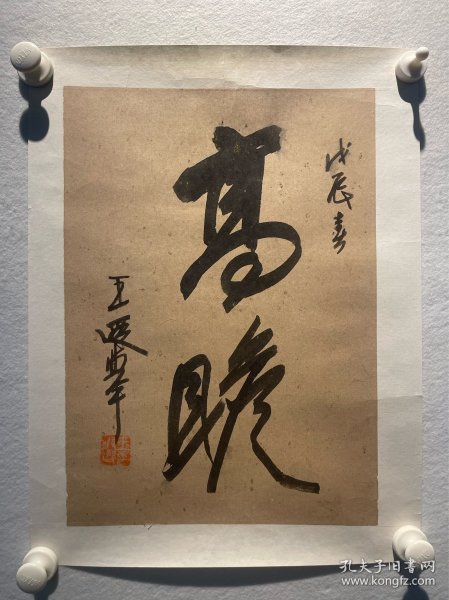 戊辰春
高瞻
王遐举
孔夫子旧书网
www.kongfz.com